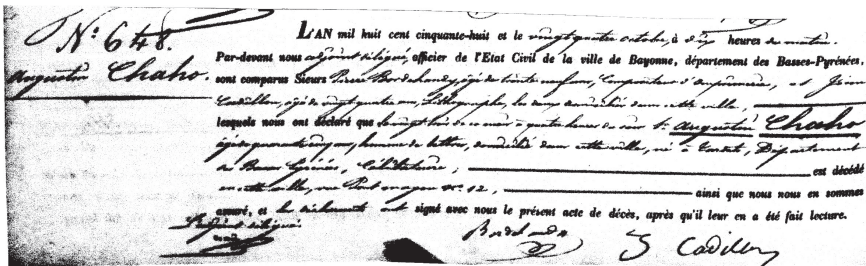 N.º 648.
Augustin Chaho.
L'AN mil huit cent cinquante-huit et le vingt quatre octobre, à dix heures du matin.
Par-devant nous adjoint délégué, officier de l'Etat Civil de la ville de Bayonne, département des Basses-Pyrénées,
sont comparus Sieurs Pierre âgé de trente neuf ans, Compositeur d'imprimerie, et Jean
âgé de vingt quatre ans, Lithographe, les deux domiciliés dans cette ville,
lesquels nous ont déclaré que le vingt trois de ce mois à quatre heures du soir Sr. Augustin Chaho
âgé de quarante cinq ans, homme de lettres, domicilié dans cette ville, né à Tardets, Département
des Basses Pyrénées, Célibataire, est décédé
en cette ville, rue Pont mayou Nº. 12, ainsi que nous nous en sommes
assuré, et les déclarants ont signé avec nous le présent acte de décès, après qu'il leur en a été fait lecture.
L'adjoint délégué